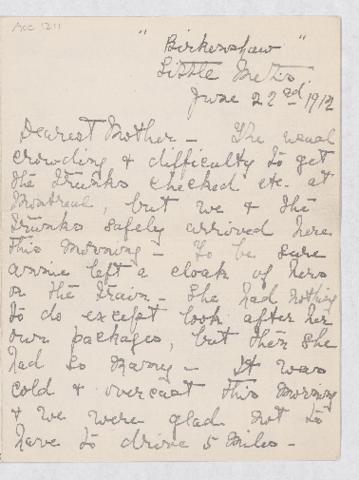 Acc 1211
"Birkenshaw"
Little Metis
June 22nd, 1912
Dearest Mother - The usual
crowding & difficulty to get
the trunks checked etc. at
Montreal, but we & the
trunks safely arrived here
this morning - To be sure
Annie left a cloak of hers
on the train - She had nothing
to do except look after her
own packages, but then she
had so many - It was
cold & overcast this morning
& we were glad not to
have to drive 5 miles -